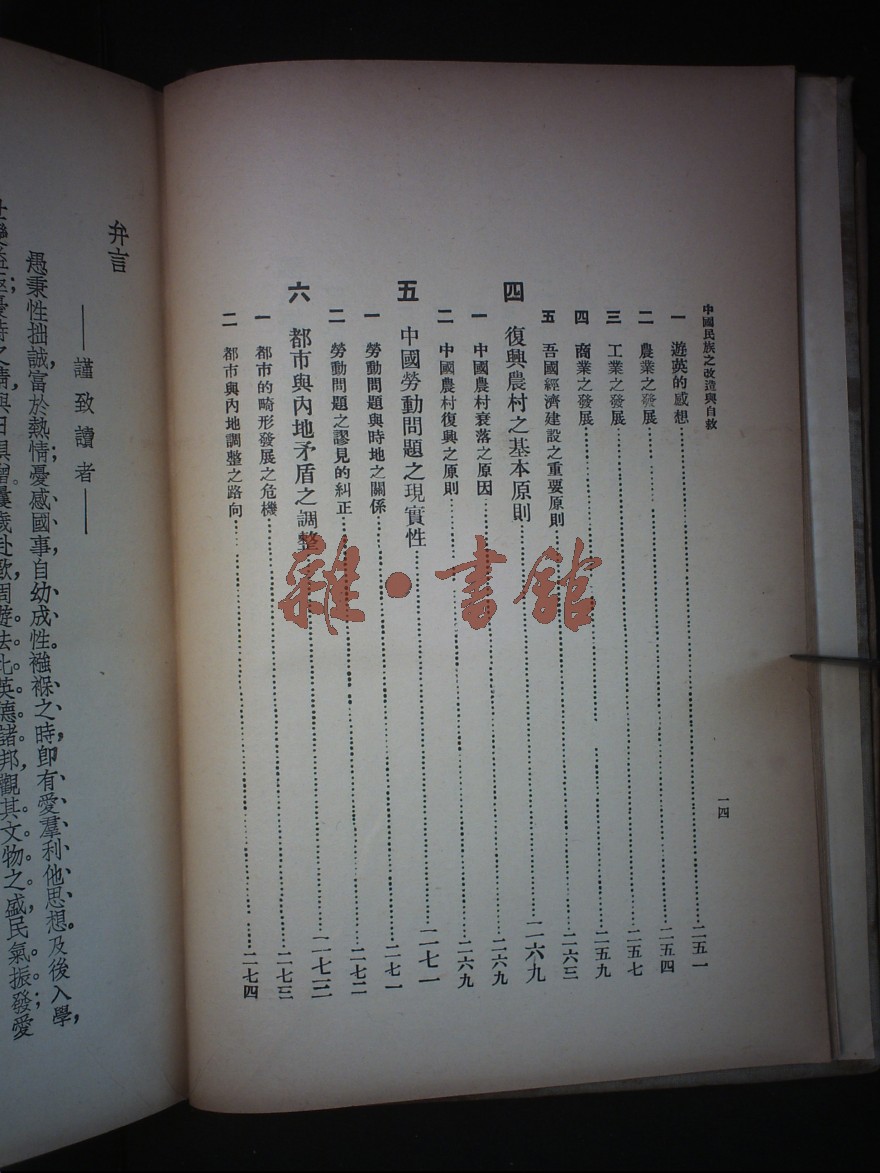 中國民族之改造與自救
一　遊英的感想……二五一
二　農業之發展……二五四
三　工業之發展……二五七
四　商業之發展……二五九
五　吾國經濟建設之重要原則……二六三
四　復興農村之基本原則……二六九
一　中國農村衰落之原因……二六九
二　中國農村復興之原則……二六九
五　中國勞動問題之現實性……二七一
一　勞動問題與時地之關係……二七一
二　勞動問題之謬見的糾正……二七二
六　都市與內地矛盾之調整……二七三
一　都市的畸形發展之危機……二七三
二　都市與內地調整之路向……二七四
一四
雜·書館
弁言
——謹致讀者——
愚秉性拙誠，富於熱情，憂感國事，自幼成性。襁褓之時，卽有愛羣利他思想。及後入學，
與日俱增。曩歲赴歐，周遊法比英德諸邦，觀其文物之盛，民氣振發；愛